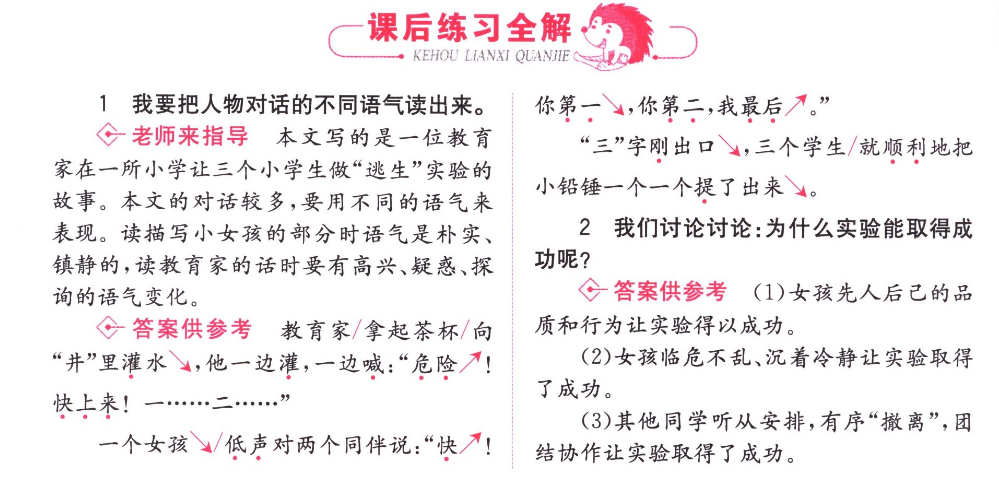 课后练习全解
KEHOU LIANXI QUANJIE
1 我要把人物对话的不同语气读出来。
老师来指导 本文写的是一位教育
家在一所小学让三个小学生做“逃生”实验的
故事。本文的对话较多,要用不同的语气来
表现。读描写小女孩的部分时语气是朴实、
镇静的,读教育家的话时要有高兴、疑惑、探
询的语气变化。
答案供参考 教育家/拿起茶杯/向
“井”里灌水↘,他一边灌,一边喊:“危险↗!
快上来!一……二……”
一个女孩↘/低声对两个同伴说:“快↗!
你第一↘,你第二,我最后↗。”
“三”字刚出口↘,三个学生/就顺利地把
小铅锤一个一个提了出来↘。
2 我们讨论讨论:为什么实验能取得成
功呢?
答案供参考 (1)女孩先人后己的品
质和行为让实验得以成功。
(2)女孩临危不乱、沉着冷静让实验取得
了成功。
(3)其他同学听从安排,有序“撤离”,团
结协作让实验取得了成功。